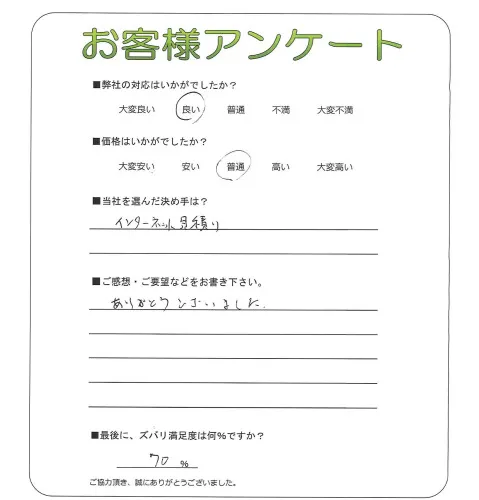 お客様アンケート
■弊社の対応はいかがでしたか？
大変良い 良い 普通 不満 大変不満
■価格はいかがでしたか？
大変安い 安い 普通 高い 大変高い
■当社を選んだ決め手は？
インターネット見積り
■ご感想・ご要望などをお書き下さい。
ありがとうございました.
■最後に、ズバリ満足度は何%ですか？
70 %
ご協力頂き、誠にありがとうございました。